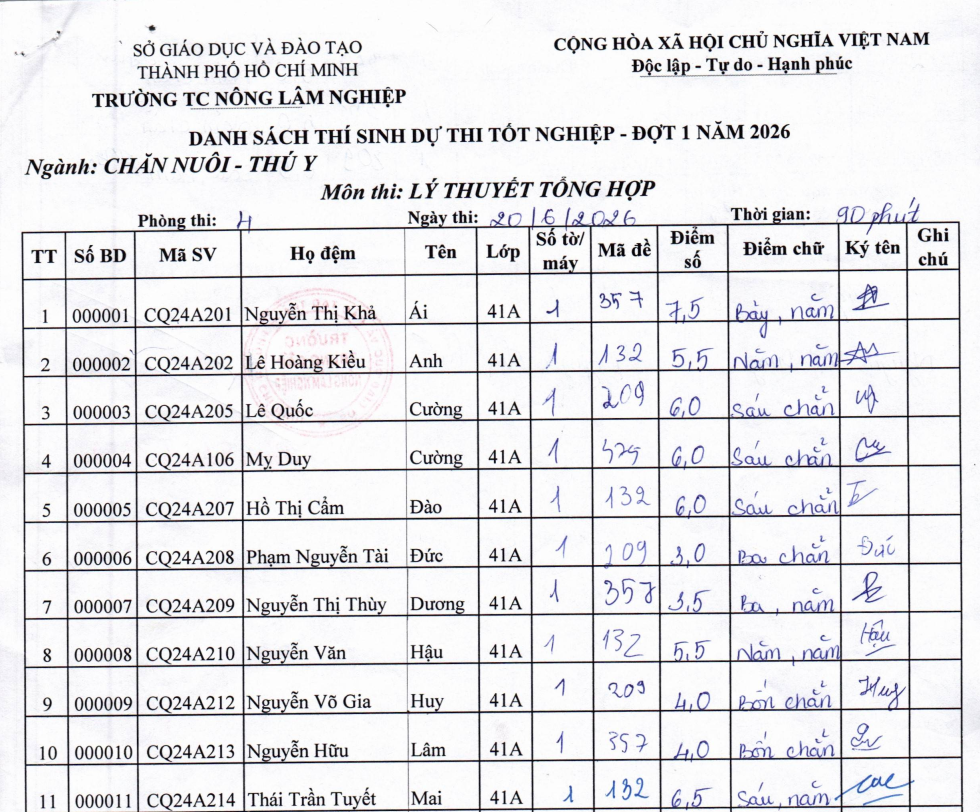 SỞ GIÁO DỤC VÀ ĐÀO TẠO
THÀNH PHỐ HỒ CHÍ MINH
TRƯỜNG TC NÔNG LÂM NGHIỆP
CỘNG HÒA XÃ HỘI CHỦ NGHĨA VIỆT NAM
Độc lập - Tự do - Hạnh phúc
DANH SÁCH THÍ SINH DỰ THI TỐT NGHIỆP - ĐỢT 1 NĂM 2026
Ngành: CHĂN NUÔI - THÚ Y
Môn thi: LÝ THUYẾT TỔNG HỢP
Phòng thi: 4 Ngày thi: 20/6/2026 Thời gian: 90 phút
TT Số BD Mã SV Họ đệm Tên Lớp Số tờ/ máy Mã đề Điểm số Điểm chữ Ký tên Ghi chú
1 000001 CQ24A201 Nguyễn Thị Khả Ái 41A 1 357 7,5 Bảy, năm
2 000002 CQ24A202 Lê Hoàng Kiều Anh 41A 1 132 5,5 Năm, năm
3 000003 CQ24A205 Lê Quốc Cường 41A 1 209 6,0 Sáu chẵn
4 000004 CQ24A106 Mỵ Duy Cường 41A 1 6,0 Sáu chẵn
5 000005 CQ24A207 Hồ Thị Cẩm Đào 41A 1 132 6,0 Sáu chẵn
6 000006 CQ24A208 Phạm Nguyễn Tài Đức 41A 1 209 3,0 Ba chẵn Đức
7 000007 CQ24A209 Nguyễn Thị Thùy Dương 41A 1 357 3,5 Ba, năm
8 000008 CQ24A210 Nguyễn Văn Hậu 41A 1 132 5,5 Năm, năm Hậu
9 000009 CQ24A212 Nguyễn Võ Gia Huy 41A 1 209 4,0 Bốn chẵn Huy
10 000010 CQ24A213 Nguyễn Hữu Lâm 41A 1 357 4,0 Bốn chẵn
11 000011 CQ24A214 Thái Trần Tuyết Mai 41A 1 132 6,5 Sáu, năm